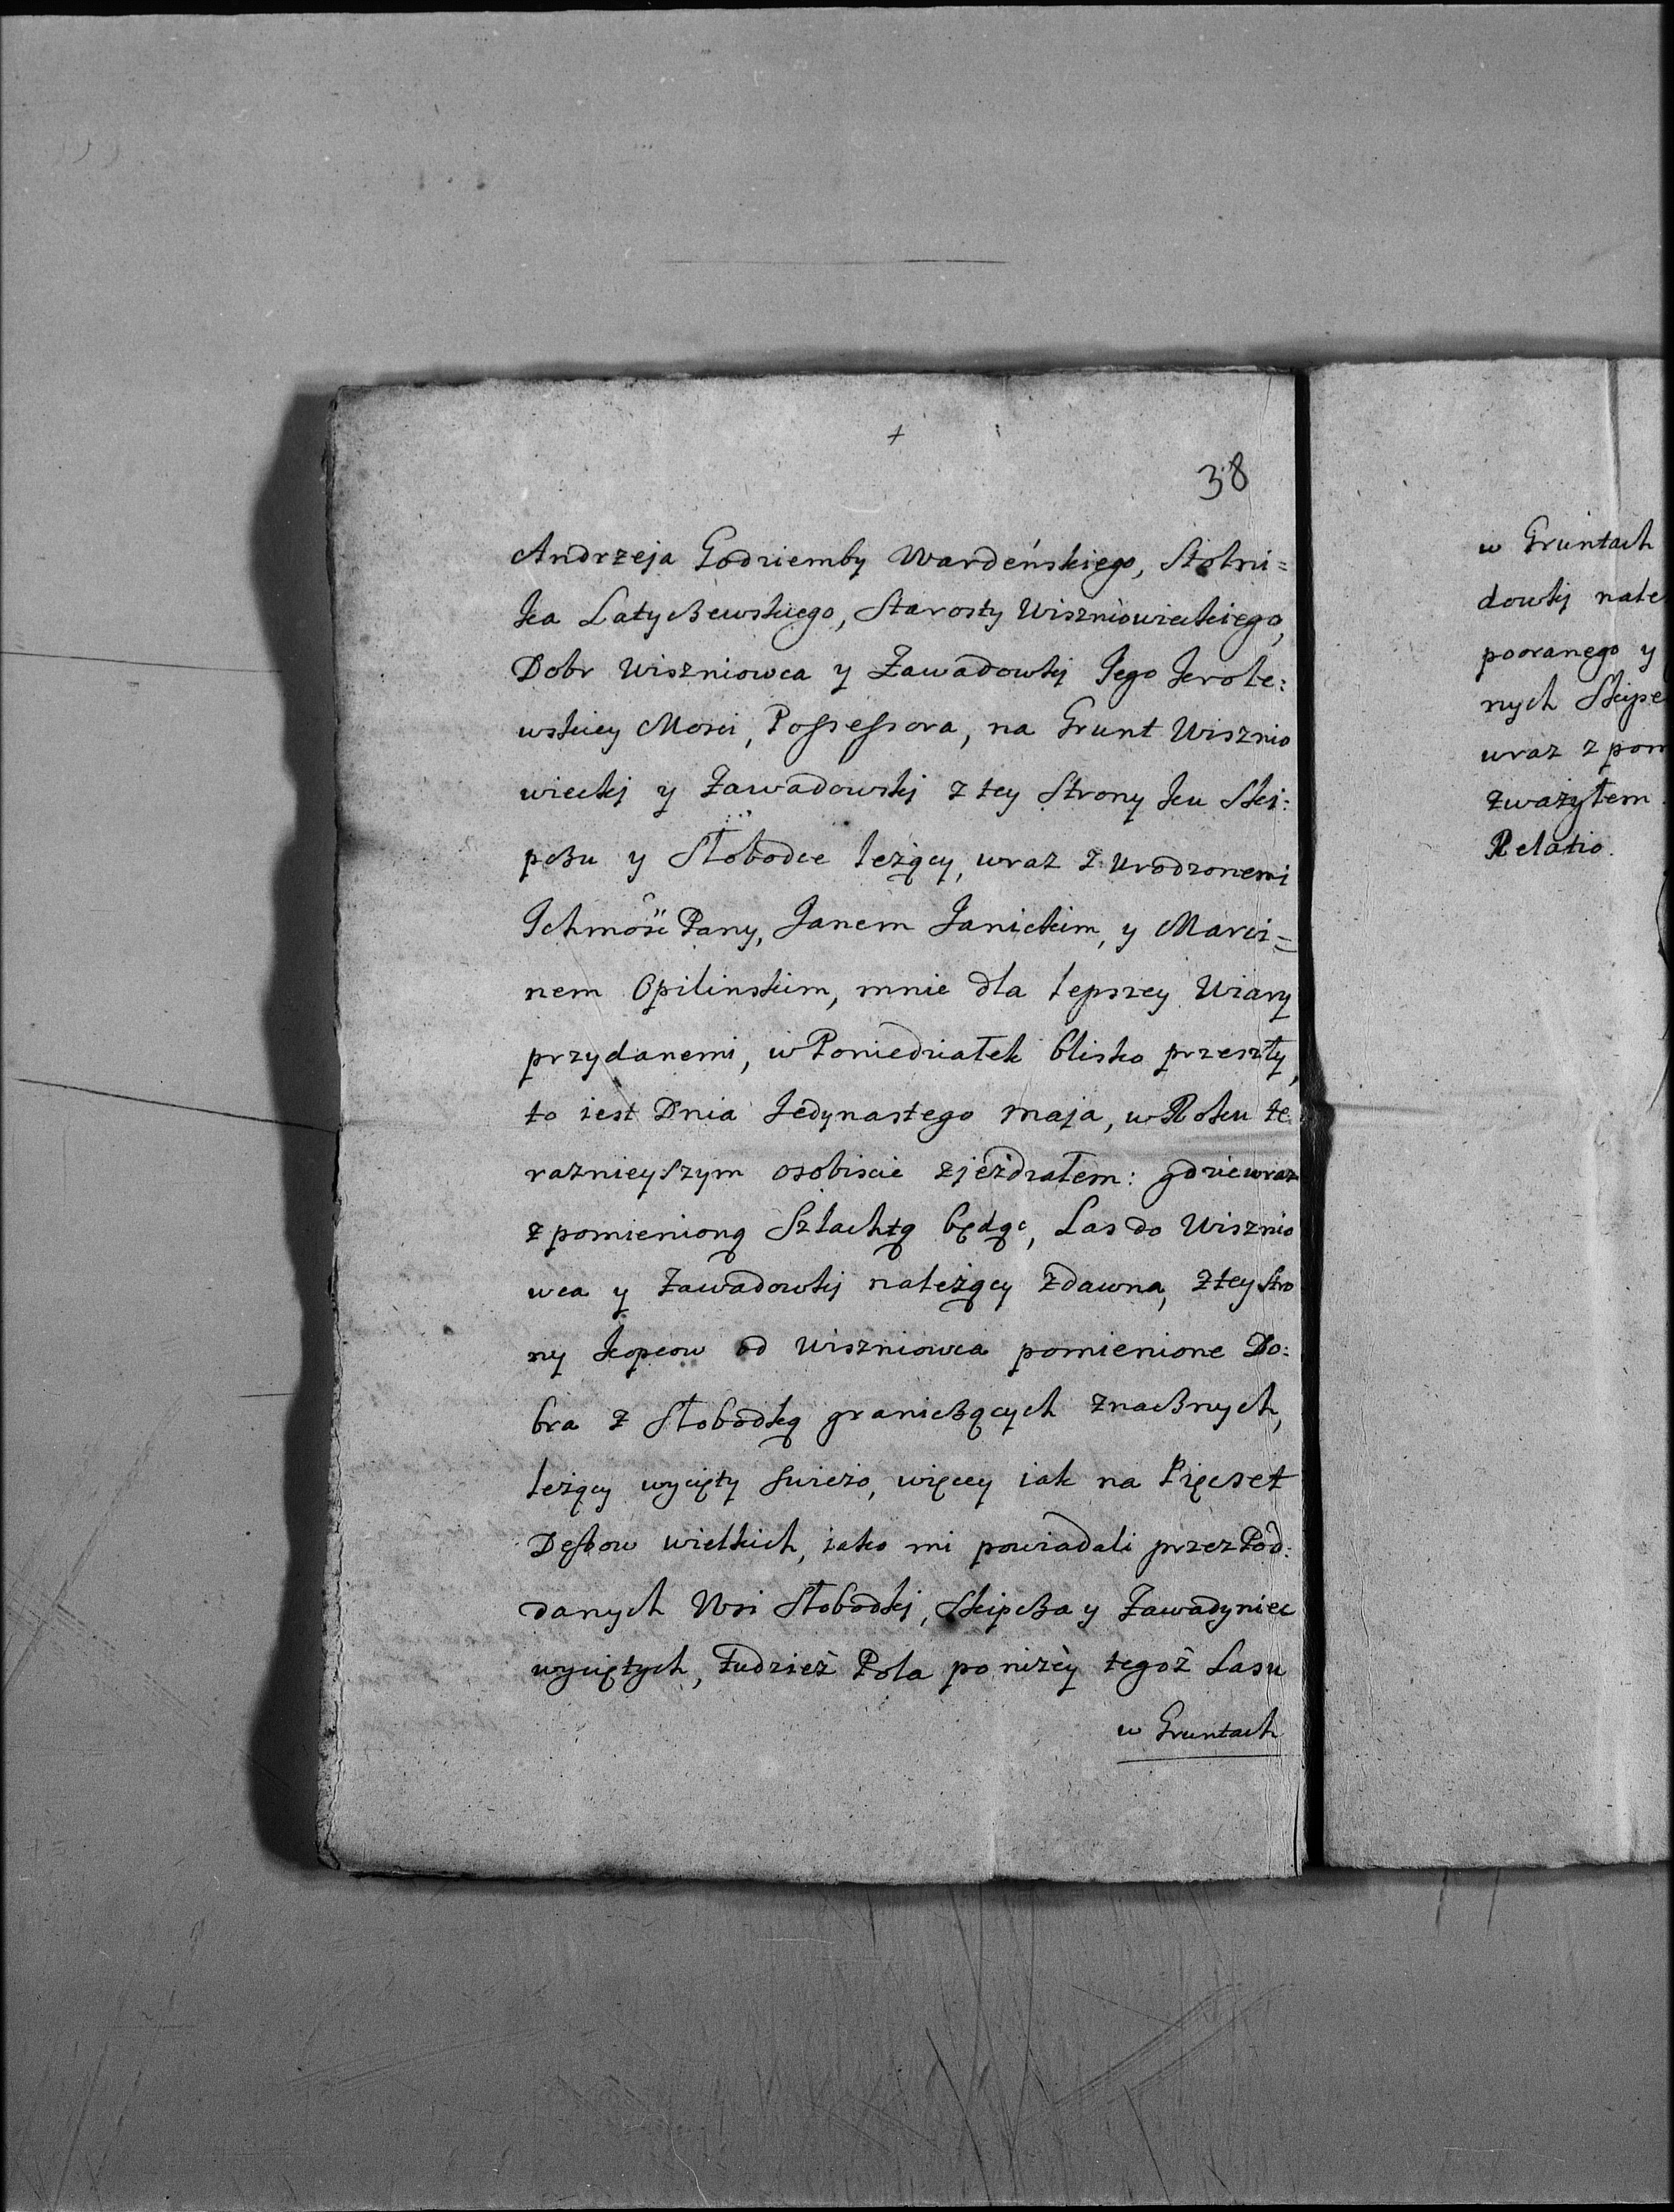 38
Andrzeja Godziemby Wardeńskiego, Stolni=
ka Latyczewskiego, Starosty Wiszniowieckiego,
Dobr Wiszniowca y Zawadowki Jego Krole:
wskiey Mosci, Possessora, na Grunt Wisznio
wiecki y Zawadowski z tey Strony ku Ski:
pczu y Słobodce leżący, wraz z Urodzonemi
Ichmość Pany, Janem Janickim, y Marci=
nem Opilinskim, mnie dla lepszey Wiary
przydanemi, w Poniedziałek blisko przeszły,
to iest Dnia Jedynastego maja, w Roku te
raznieyszym osobiscie zjeżdzałem: gdzie wraz
z pomienioną Szlachtą będąc, Las do Wisznio
wca y Zawadowki należący zdawna, z tey Stro
ny Kopcow od Wiszniowca pomienione Do:
bra z Słobodką graniczących znacznych,
leżący wycięty swieżo, więcey iak na Pięcset
Dębow wielkich, iako mi powiadali przez Pod:
danych Wsi Słobodki, Skipcza y Zawadyniec
wyciętych, Tudzież Pola poniżey tegoż Lasu
w Gruntach
w Gruntach
dowki nale
pooranego y
nych Skipc
wraz z pom
zważyłem
Relatio.